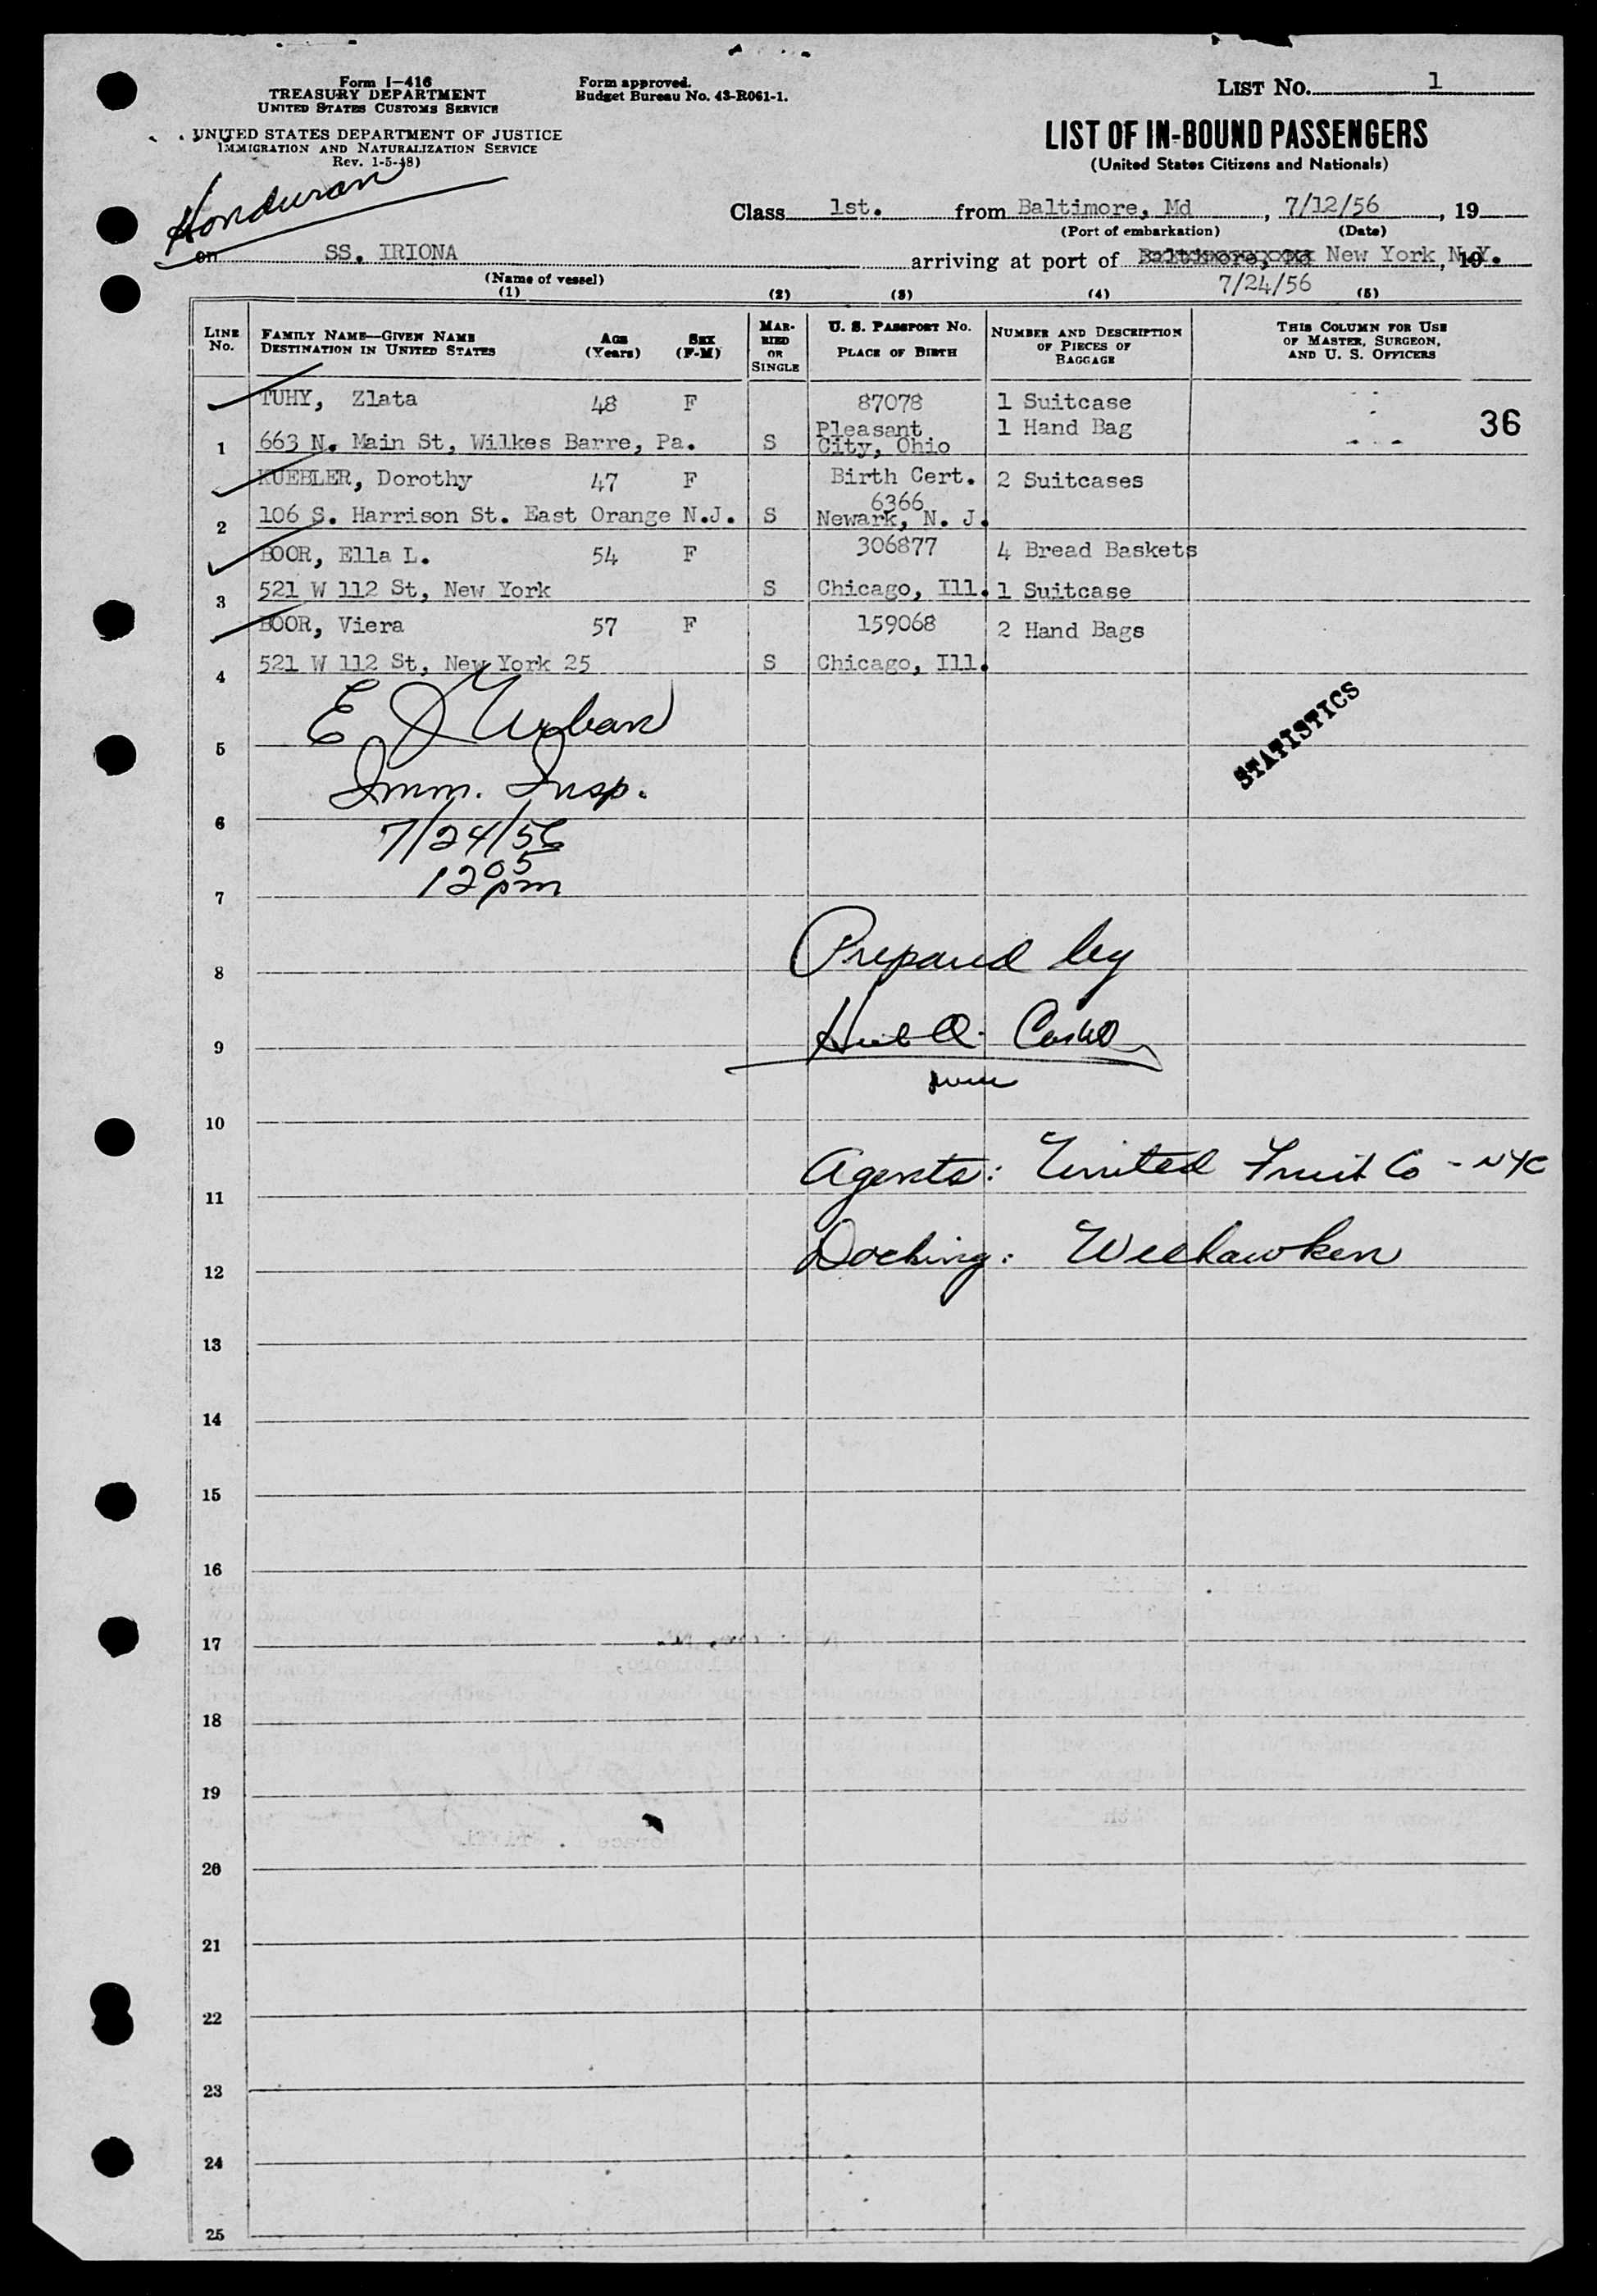 Form I-416
TREASURY DEPARTMENT
UNITED STATES CUSTOMS SERVICE
UNITED STATES DEPARTMENT OF JUSTICE
IMMIGRATION AND NATURALIZATION SERVICE
Rev. 1-5-48)
Form approved.
Budget Bureau No. 43-R061-1.
LIST No. 1
LIST OF IN-BOUND PASSENGERS
(United States Citizens and Nationals)
Honduran
Class 1st. from Baltimore, Md , 7/12/56 , 19
(Port of embarkation) (Date)
on SS. IRIONA arriving at port of New York N.Y. , 19
(Name of vessel) 7/24/56
(1) (2) (3) (4) (5)
LINE No. FAMILY NAME—GIVEN NAME DESTINATION IN UNITED STATES AGE (Years) SEX (F-M) MARRIED OR SINGLE U. S. PASSPORT No. PLACE OF BIRTH NUMBER AND DESCRIPTION OF PIECES OF BAGGAGE THIS COLUMN FOR USE OF MASTER, SURGEON, AND U. S. OFFICERS
TUHY, Zlata 48 F 87078 1 Suitcase
36
1 663 N. Main St, Wilkes Barre, Pa. S Pleasant City, Ohio 1 Hand Bag
KUEBLER, Dorothy 47 F Birth Cert. 6366 2 Suitcases
2 106 S. Harrison St. East Orange N.J. S Newark, N. J.
BOOR, Ella L. 54 F 306877 4 Bread Baskets
3 521 W 112 St, New York S Chicago, Ill. 1 Suitcase
BOOR, Viera 57 F 159068 2 Hand Bags
4 521 W 112 St, New York 25 S Chicago, Ill.
E J Urban
STATISTICS
5
Imm. Insp.
6
7/24/56
12 05 pm
7
Prepared by
8
9
10
Agents: United Fruit Co - NYC
11
Docking: Weehawken
12
13
14
15
16
17
18
19
20
21
22
23
24
25